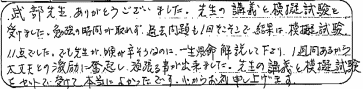 武部先生、ありがとうございました。先生の講義と模擬試験を
受けました。勉強の時間が取れず、過去問題も1回だこそこで結果は、模擬試験
11点でした。でも先生が、喉が辛そうなのに、一生懸命解説して下さり、1週間あるから
大丈夫との激励に奮起し、頑張る事が出来ました。先生の講義と模擬試験
をセットで受けて本当によかったです。心からお礼申し上げます。